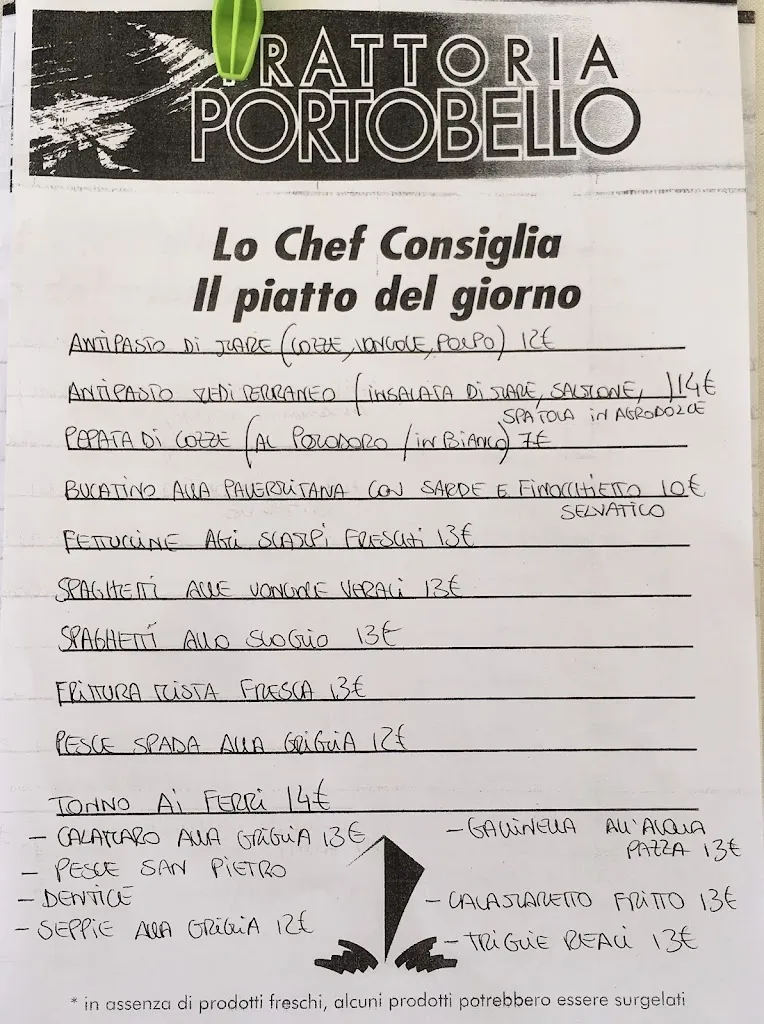 TRATTORIA
PORTOBELLO
Lo Chef Consiglia
Il piatto del giorno
ANTIPASTO DI MARE (COZZE, VONGOLE, POLPO) 12€
ANTIPASTO MEDITERRANEO (INSALATA DI MARE, SALMONE, ) 14€
SPATOLA IN AGRODOLCE
PEPATA DI COZZE (AL POMODORO / IN BIANCO) 7€
BUCATINO ALLA PALERMITANA CON SARDE E FINOCCHIETTO 10€
SELVATICO
FETTUCCINE AGLI SCAMPI FRESCHI 13€
SPAGHETTI ALLE VONGOLE VERACI 13€
SPAGHETTI ALLO SCOGLIO 13€
FRITTURA MISTA FRESCA 13€
PESCE SPADA ALLA GRIGLIA 12€
TONNO AI FERRI 14€
- CALAMARO ALLA GRIGLIA 13€
- PESCE SAN PIETRO
- DENTICE
- SEPPIE ALLA GRIGLIA 12€
- GALLINELLA ALL'ACQUA
PAZZA 13€
- CALAMARETTO FRITTO 13€
- TRIGLIE REALI 13€
* in assenza di prodotti freschi, alcuni prodotti potrebbero essere surgelati